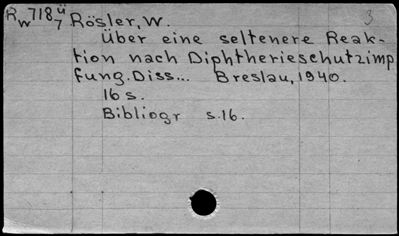 R 718 ü 3
w 7 Rösler, W.
Über eine seltenere Reak-
tion nach Diphtherieschutzimp
fung. Diss... Breslau, 1940.
16 s.
Bibliogr s.16.